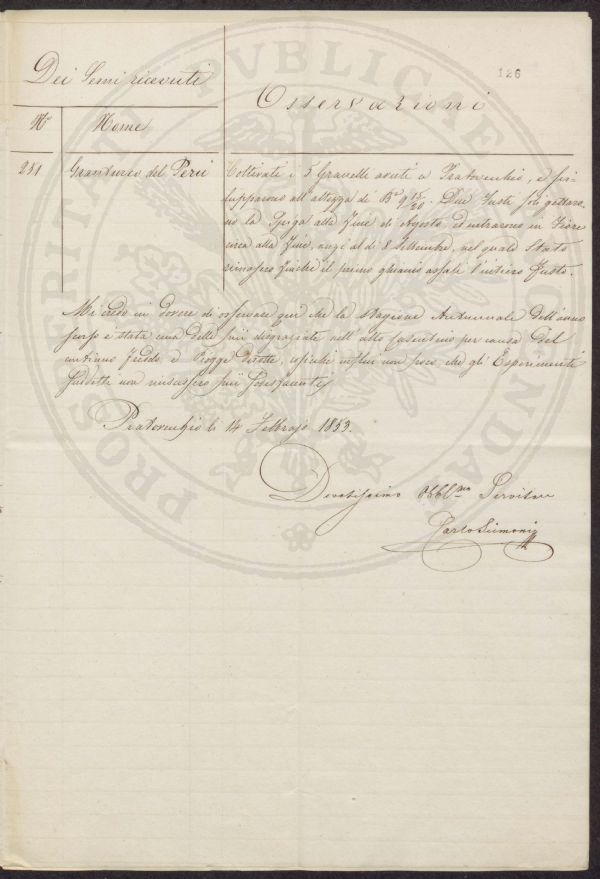 126
Dei Semi ricevuti
Osservazioni
No
Nome
251
Granturco del Perù
Coltivati i 5 Granelli avuti a Pratovecchio, e svi-
lupparono all'altezza di Ba 9 15/20. Due fusti soli gettaro-
no la Spiga alla fine di Agosto, ed entrarono in Fiore
circa alla fine, anzi al dì 8 Settembre, nel quale Stato
rimasero finchè il primo ghiaccio assalì l'intiero fusto.
Mi credo in dovere di osservare qui che la Stagione Autunnale dell'anno
scorso è stata una delle più disgraziate nell'alto Casentino per causa del
continuo freddo, e Piogge dirotte, cosicchè influì non poco che gli Esperimenti
suddetti non riuscissero più soddisfacenti
Pratovecchio li 14 Febbrajo 1853.
Devotissimo Obblmo Servitore
Carlo Siemoni
PROSPERITATI PVBLICAE